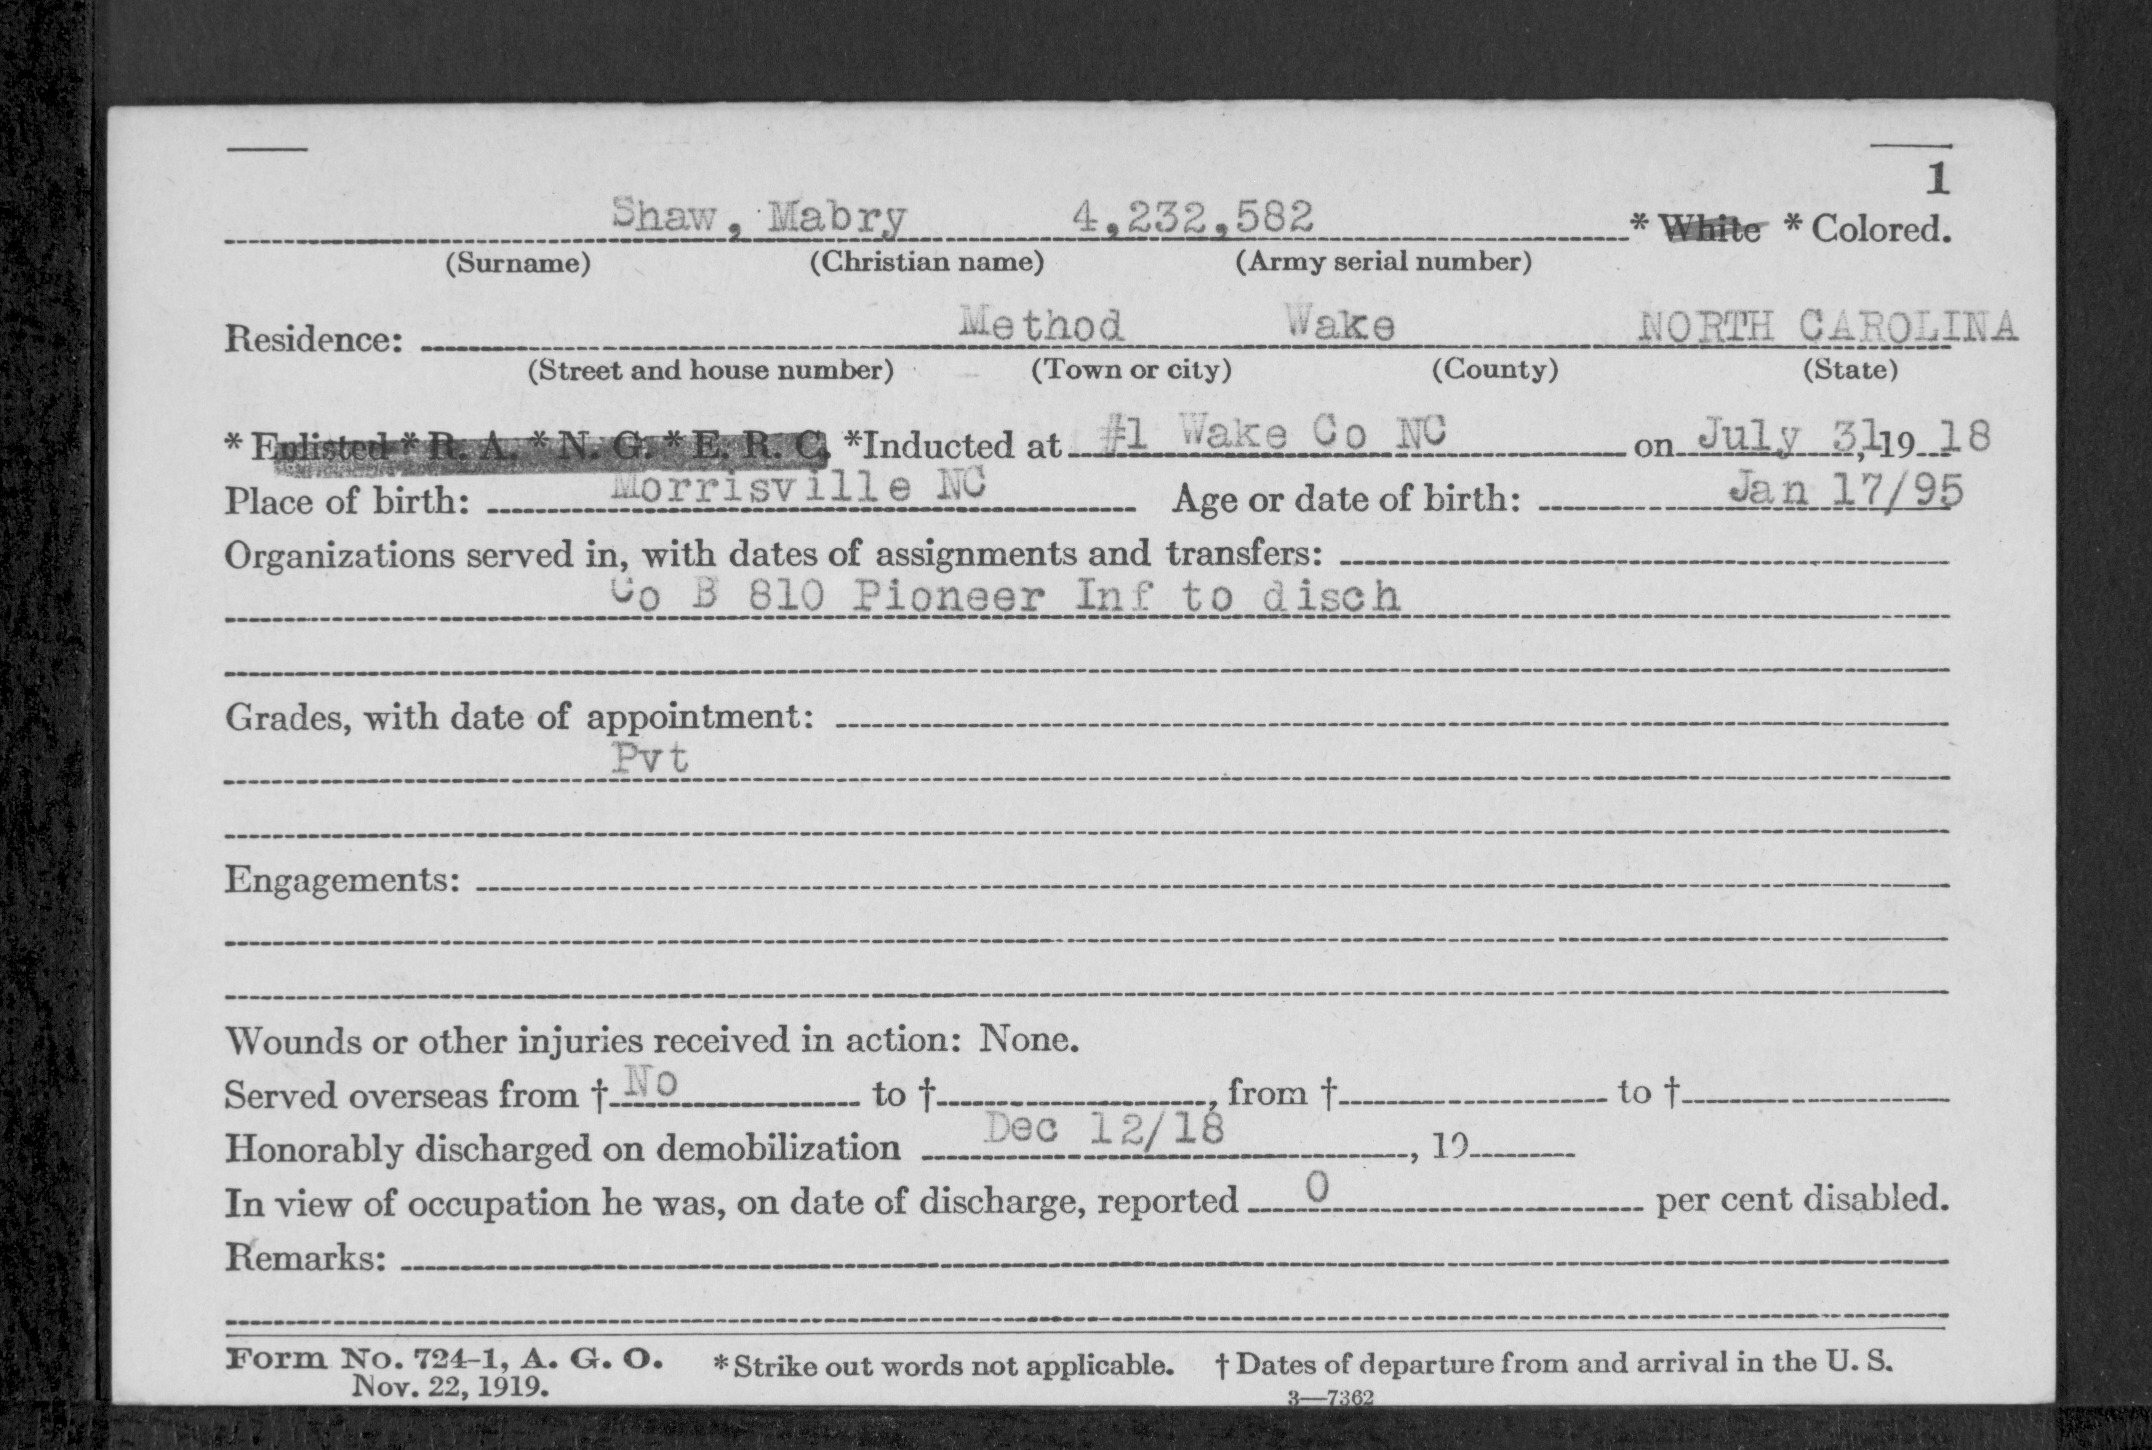 1
Shaw, Mabry 4,232,582 * White * Colored.
(Surname) (Christian name) (Army serial number)
Residence: Method Wake NORTH CAROLINA
(Street and house number) (Town or city) (County) (State)
* Enlisted * R. A. * N. G. * E. R. C. *Inducted at #1 Wake Co NC on July 31, 19 18
Place of birth: Morrisville NC Age or date of birth: Jan 17/95
Organizations served in, with dates of assignments and transfers:
Co B 810 Pioneer Inf to disch
Grades, with date of appointment:
Pvt
Engagements:
Wounds or other injuries received in action: None.
Served overseas from † No to † , from † to †
Honorably discharged on demobilization Dec 12/18 , 19
In view of occupation he was, on date of discharge, reported 0 per cent disabled.
Remarks:
Form No. 724-1, A. G. O. * Strike out words not applicable. † Dates of departure from and arrival in the U. S.
Nov. 22, 1919.
3—7362